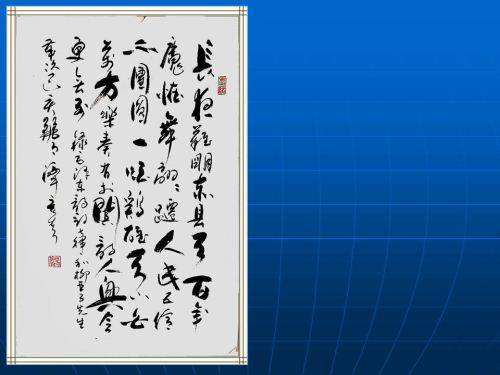 長夜難明赤县天百年
魔怪舞翩〻躚人民五億
不團圓一唱鷄雄天下白
萬方樂奏有于闐詩人興會
更無前 錄毛澤東詩詞 和柳亚子先生